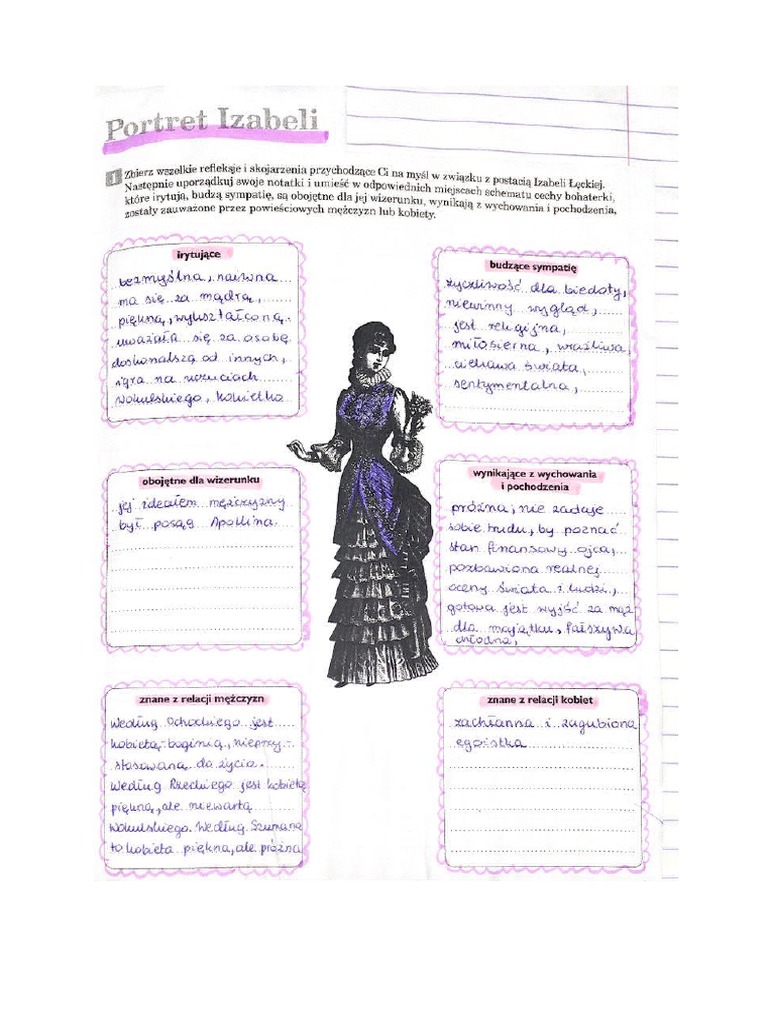 Portret Izabeli
1 Zbierz wszelkie refleksje i skojarzenia przychodzące Ci na myśl w związku z postacią Izabeli Łęckiej.
Następnie uporządkuj swoje notatki i umieść w odpowiednich miejscach schematu cechy bohaterki,
które irytują, budzą sympatię, są obojętne dla jej wizerunku, wynikają z wychowania i pochodzenia,
zostały zauważone przez powieściowych mężczyzn lub kobiety.
irytujące
bezmyślna, naiwna
ma się za mądrą,
piękną, wykształconą.
uważała się za osobę
doskonalszą od innych,
igra na uczuciach
Wokulskiego, kokietka
budzące sympatię
życzliwość dla biedoty,
niewinny wygląd,
jest religijna,
miłosierna, wrażliwa,
ciekawa świata,
sentymentalna,
obojętne dla wizerunku
jej ideałem mężczyzny
był posąg Apollina.
wynikające z wychowania
i pochodzenia
próżna, nie zadaje
sobie trudu, by poznać
stan finansowy ojca,
pozbawiona realnej
oceny świata i ludzi,
gotowa jest wyjść za mąż
dla majątku, fałszywa
chłodna,
znane z relacji mężczyzn
Według Ochockiego jest
kobietą-boginią, nieprzy-
stosowaną do życia.
Według Rzeckiego jest kobietą
piękną, ale niewartą
Wokulskiego. Według Szumana
to kobieta piękna, ale próżna
znane z relacji kobiet
zachłanna i zagubiona
egoistka